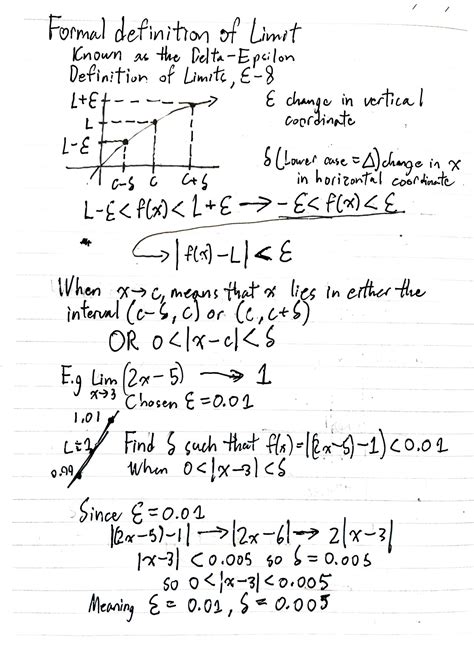 Formal definition of Limit
Known as the Delta-Epsilon
Definition of Limits, ε-δ
L+ε
L
L-ε
c-δ c c+δ
ε change in vertical
coordinate
δ (Lower case = Δ) change in x
in horizontal coordinate
L-ε < f(x) < L+ε → -ε < f(x) < ε
→ |f(x)-L| < ε
When x→c, means that x lies in either the
interval (c-δ, c) or (c, c+δ)
OR 0<|x-c|<δ
E.g Lim (2x-5) → 1
x→3
Chosen ε=0.01
1.01
L=1
0.99
Find δ such that f(x)=|(2x-5)-1)<0.01
When 0<|x-3|<δ
Since ε=0.01
|(2x-5)-1| → |2x-6| → 2|x-3|
|x-3| < 0.005 so δ = 0.005
so 0<|x-3|<0.005
Meaning ε = 0.01, δ = 0.005